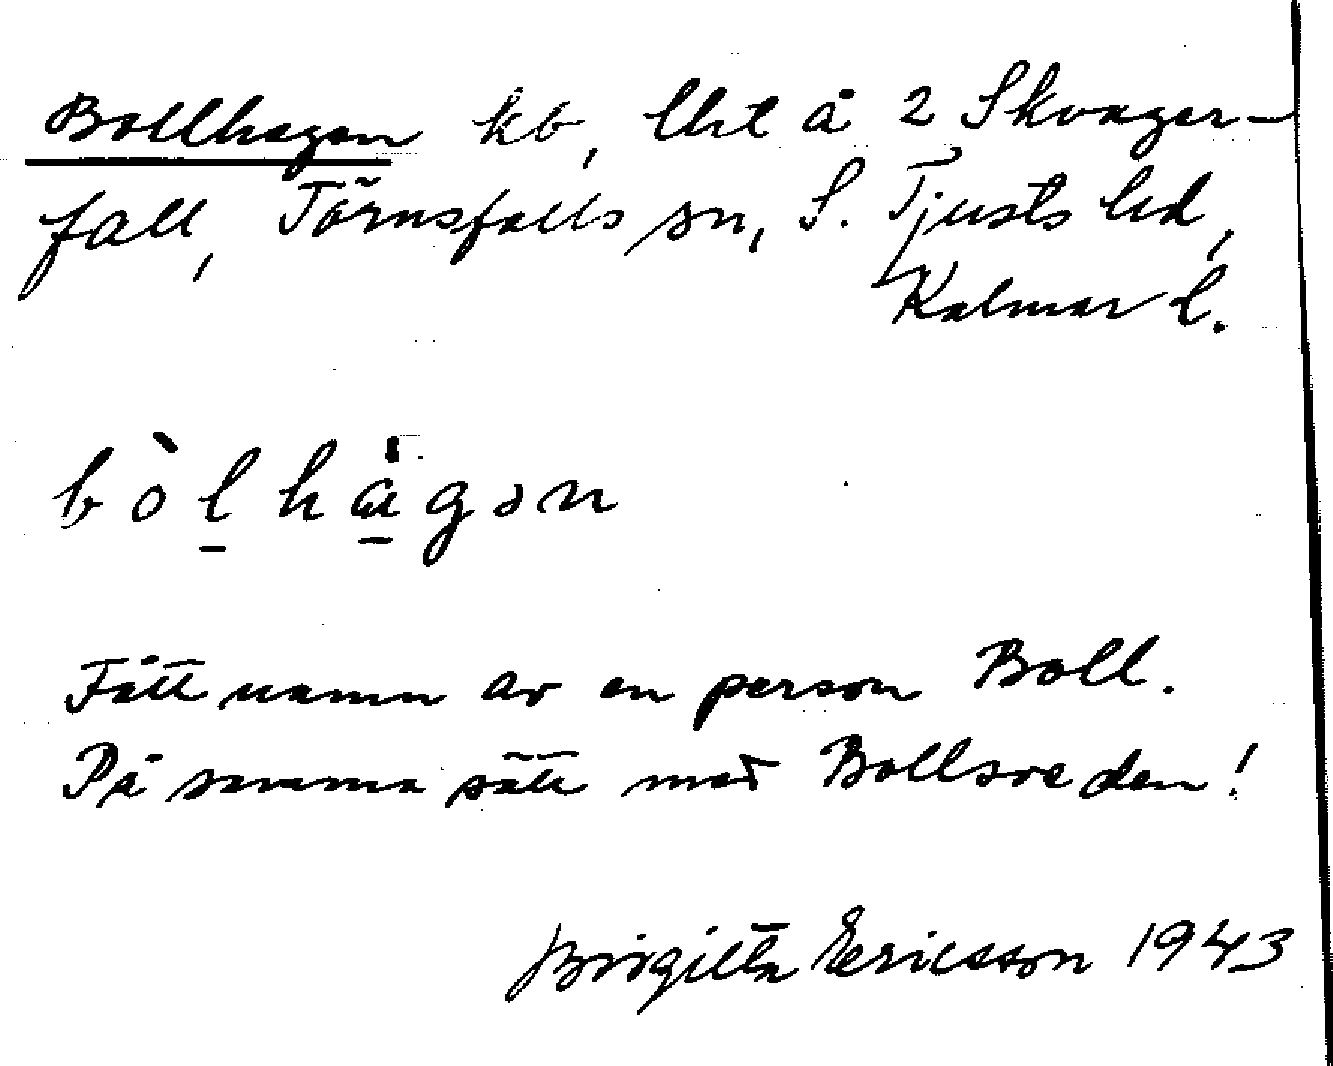 Bollhagen kb, lht å 2 Skvager-
fall, Törnsfalls sn, S. Tjusts hd,
Kalmar l.
bòl̠hà̠gən
Fått namn av en person Boll.
På samma sätt med Bollsveden!
Birgitta Ericsson 1943